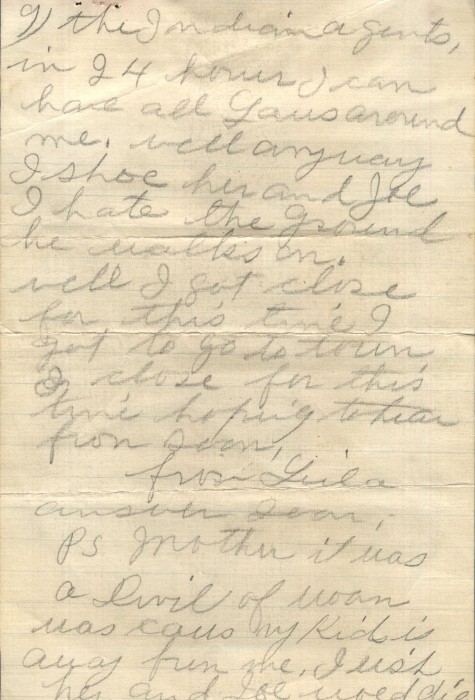 9) the Indian agents,
in 24 hour I can
have all Laws around
me. well anyway
I shoe her and Joe
I hate the ground
he walks on.
well I got close
for this time I
got to go to town
So close for this
time hoping to hear
from soon,
from Leila
answer soon,
PS Mother it was
a Divil of woan
was caus my Kid is
away frum me. I wish
her and Joe woed die